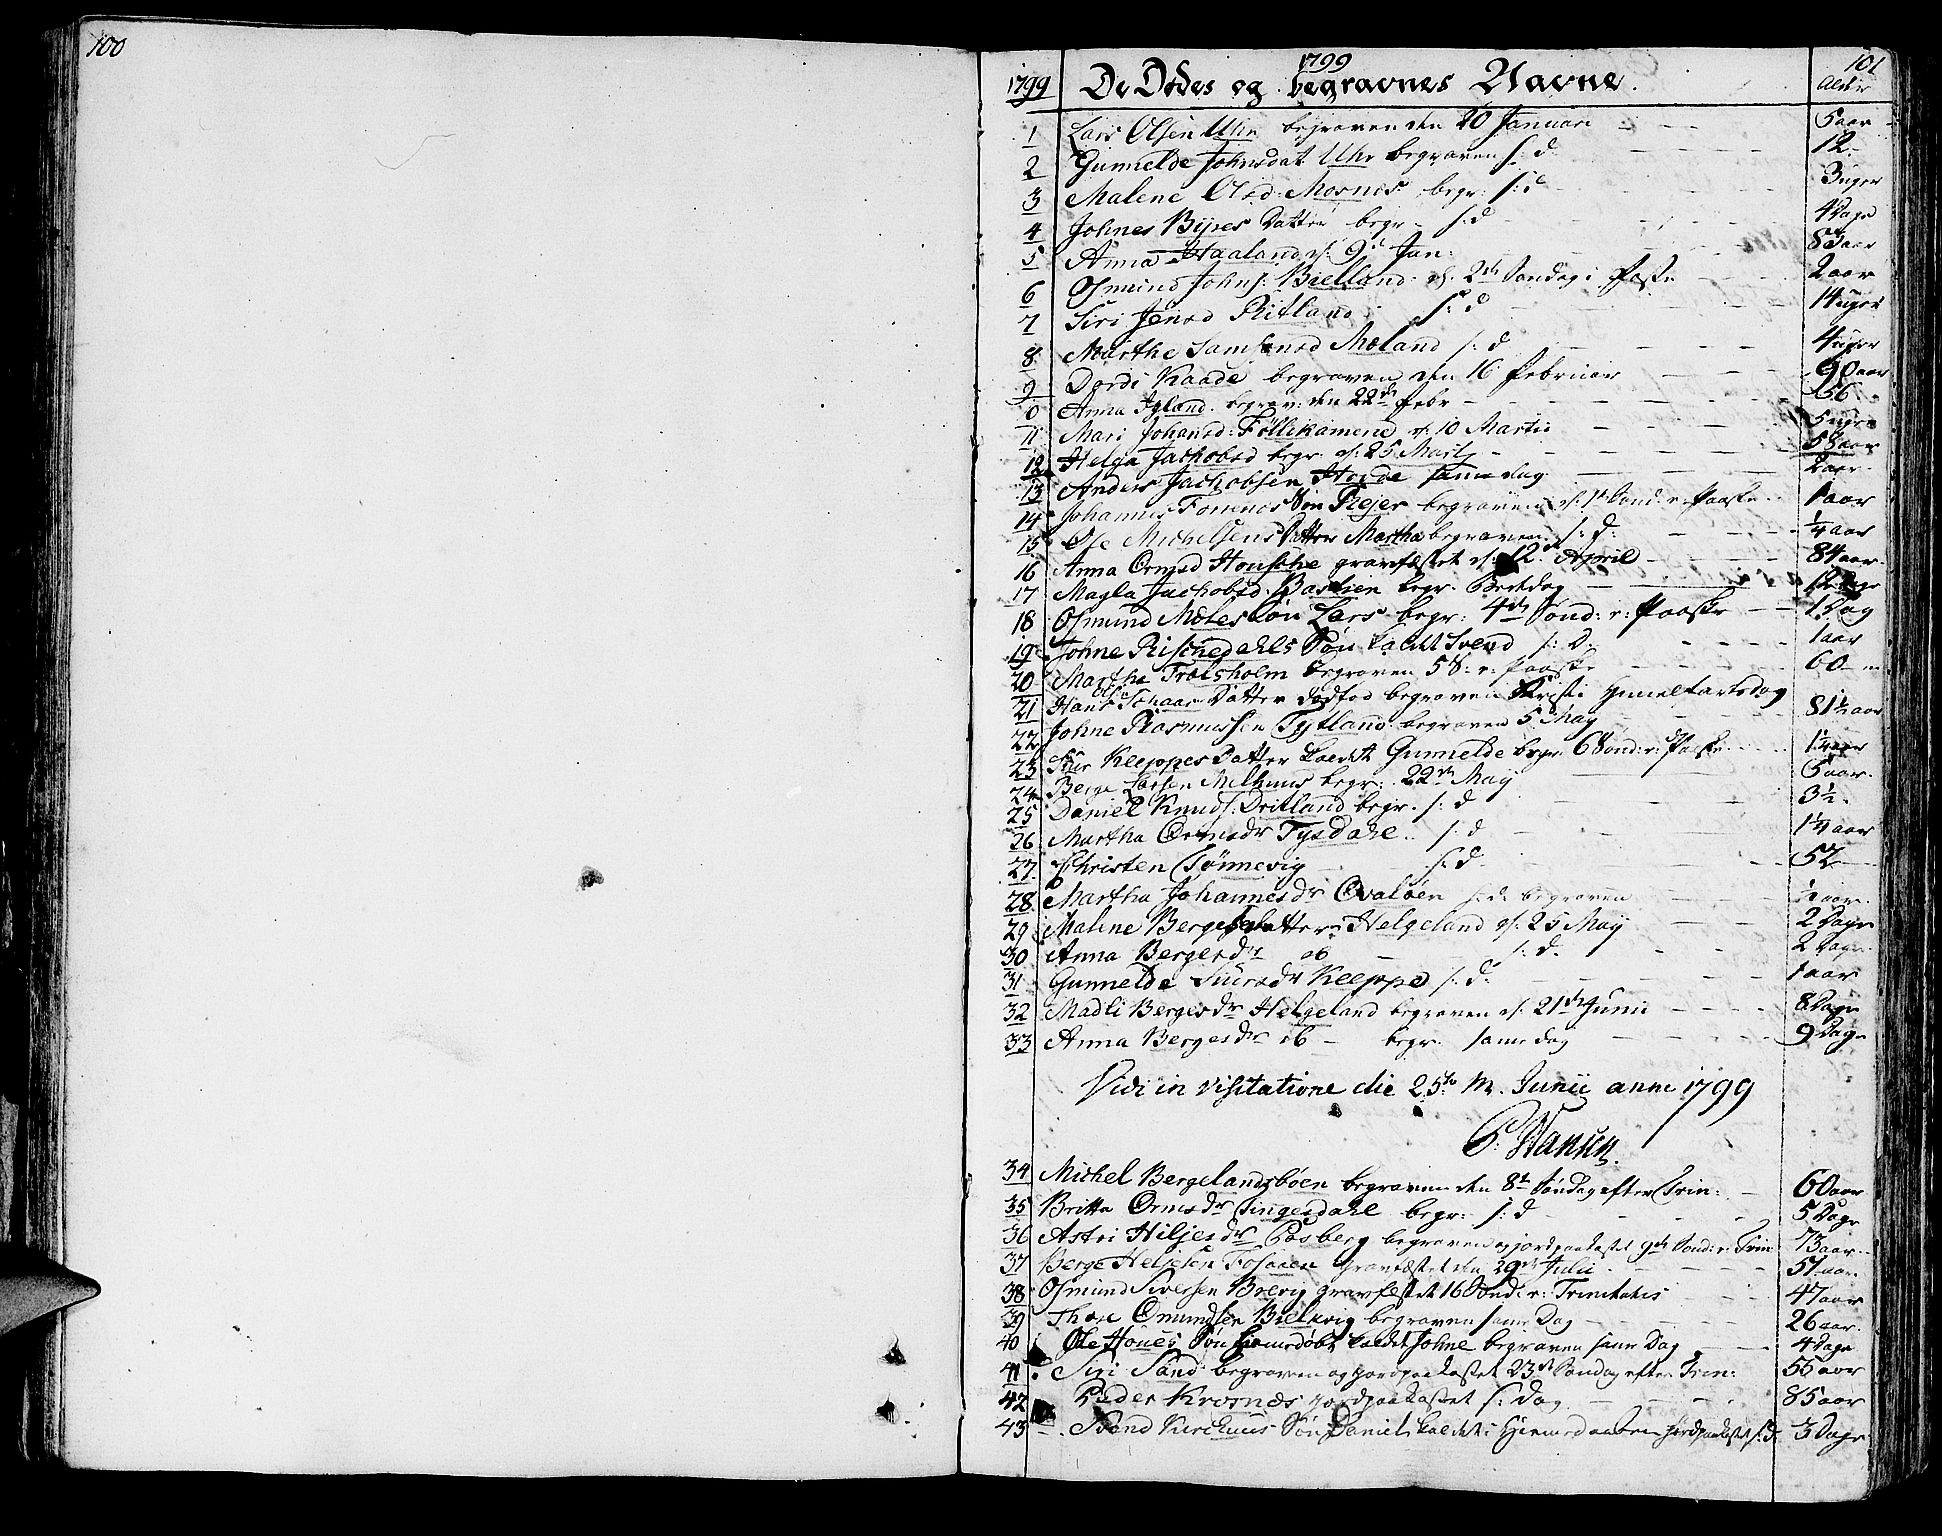 100
1799
101
1799 De Dødes og begravnes Navne. Alder
1 Lars Olsen Uhr begraven den 20 Januari 5 aar
2 Gunnelde Johnsdat Uhr begraven s: d. 12
3 Malene Olsd. Mosnes begr: s: d 3 uger
4 Johnes Byes Datter begr s: d 4 Dage
5 Anna Haaland d. 9d Jan: 83 aar
6 Osmund Johns: Bielland d. 2den Søndag i Faste 2 aar
7 Siri Jensd Ritland s: d 14 uger
8 Marthe Samsonsd Mæland s: d 4 uger
9 Dordi Kaade begraven den 16 Februar 90 aar
0 Anna Igland begrav: den 22de Febr 56
11 Mari Johansd: Føllikamene d. 10 Martii 5 uger
12 Helga Jachobsd begr d. 25 Martj 58 aar
13 Anders Jachobsen Horde samme dag 2 aar
14 Johannes Fonnes Søn Rejer begraven d. 1ste Sønd: e. Paaske 1 aar
15 Ole Michelsens Datter Martha begraven s: d: ¼ aar
16 Anna Ormsd Housche gravfæstet d. 12 April 84 aar
17 Magla Jachobsd. Bastien begr. Bededag 12 Dage
18 Osmund Moles Søn Lars begr: 4de Sønd: e: Paaske 1 Dag
19 Johne Rischedahls Søn kaldet Svend s: d. 1 aar
20 Martha Træsholm begraven 5 S: e: Paaske 60
21 Hans Olsen Schaar Datter dødfød begraven Kristi Himmelfartsdag
22 Johne Rasmussen Tytland begraven 5 May 81½ aar
23 Siur Kleppes Datter kaldet Gunnelde begr 6 Sønd: e: Paaske 1¼ aar
24 Berge Larsen Melhuus begr: 22de May 6 aar
25 Daniel Knuds: Dritland begr. s: d 3½
26 Martha Ormsdr Tysdahl s: d 1¼ aar
27 Christen Tønnevig s: d 52
28 Martha Johannesdr Qvaløen s: d. begraven ½ aar
29 Malene Berges Datter Helgeland d. 25 May 2 Dage
30 Anna Bergesdr ib s: d. 2 Dage
31 Gunnelde Siursdr Kleppe s: d. 1 aar
32 Madli Bergesdr Helgeland begraven d. 21de Junii 8 Dage
33 Anna Bergesdr ib begr. samme dag 9 Dage
Vidi in visitatione die 25to M. Junii anno 1799
P. Hansen.
34 Michel Bergelandsbøen begraven den 8de Søndag efter Trin: 60 aar
35 Britta Ormsdr Tingesdahl begr: s: d 5 Dage
36 Astri Hiljesdr Posberg begraven og jordpaakastet 9de Sønd: e: Trin 73 aar
37 Berge Heljesen Fosaaen gravfæstet den 29de Julii 51 aar
38 Osmund Siversen Brevig gravfæstet 16 Sønd: e: Trinitatis 47 aar
39 Thore Omundsen Bielkvig begraven samme Dag 26 aar.
40 Ole Houes Søn hiemedøbt kaldet Johne begraven samme Dag 4 Dage
41 Siri Sand begraven og jordpaakastet 23de Søndag efter Trin: 55 aar
42 Peder Krosnæs jordpaakastet s: dag 85 aar
43 Svend Kirchuus Søn Daniel kaldet i Hiemedaaben jordpaakastet s: d. 3 Dage